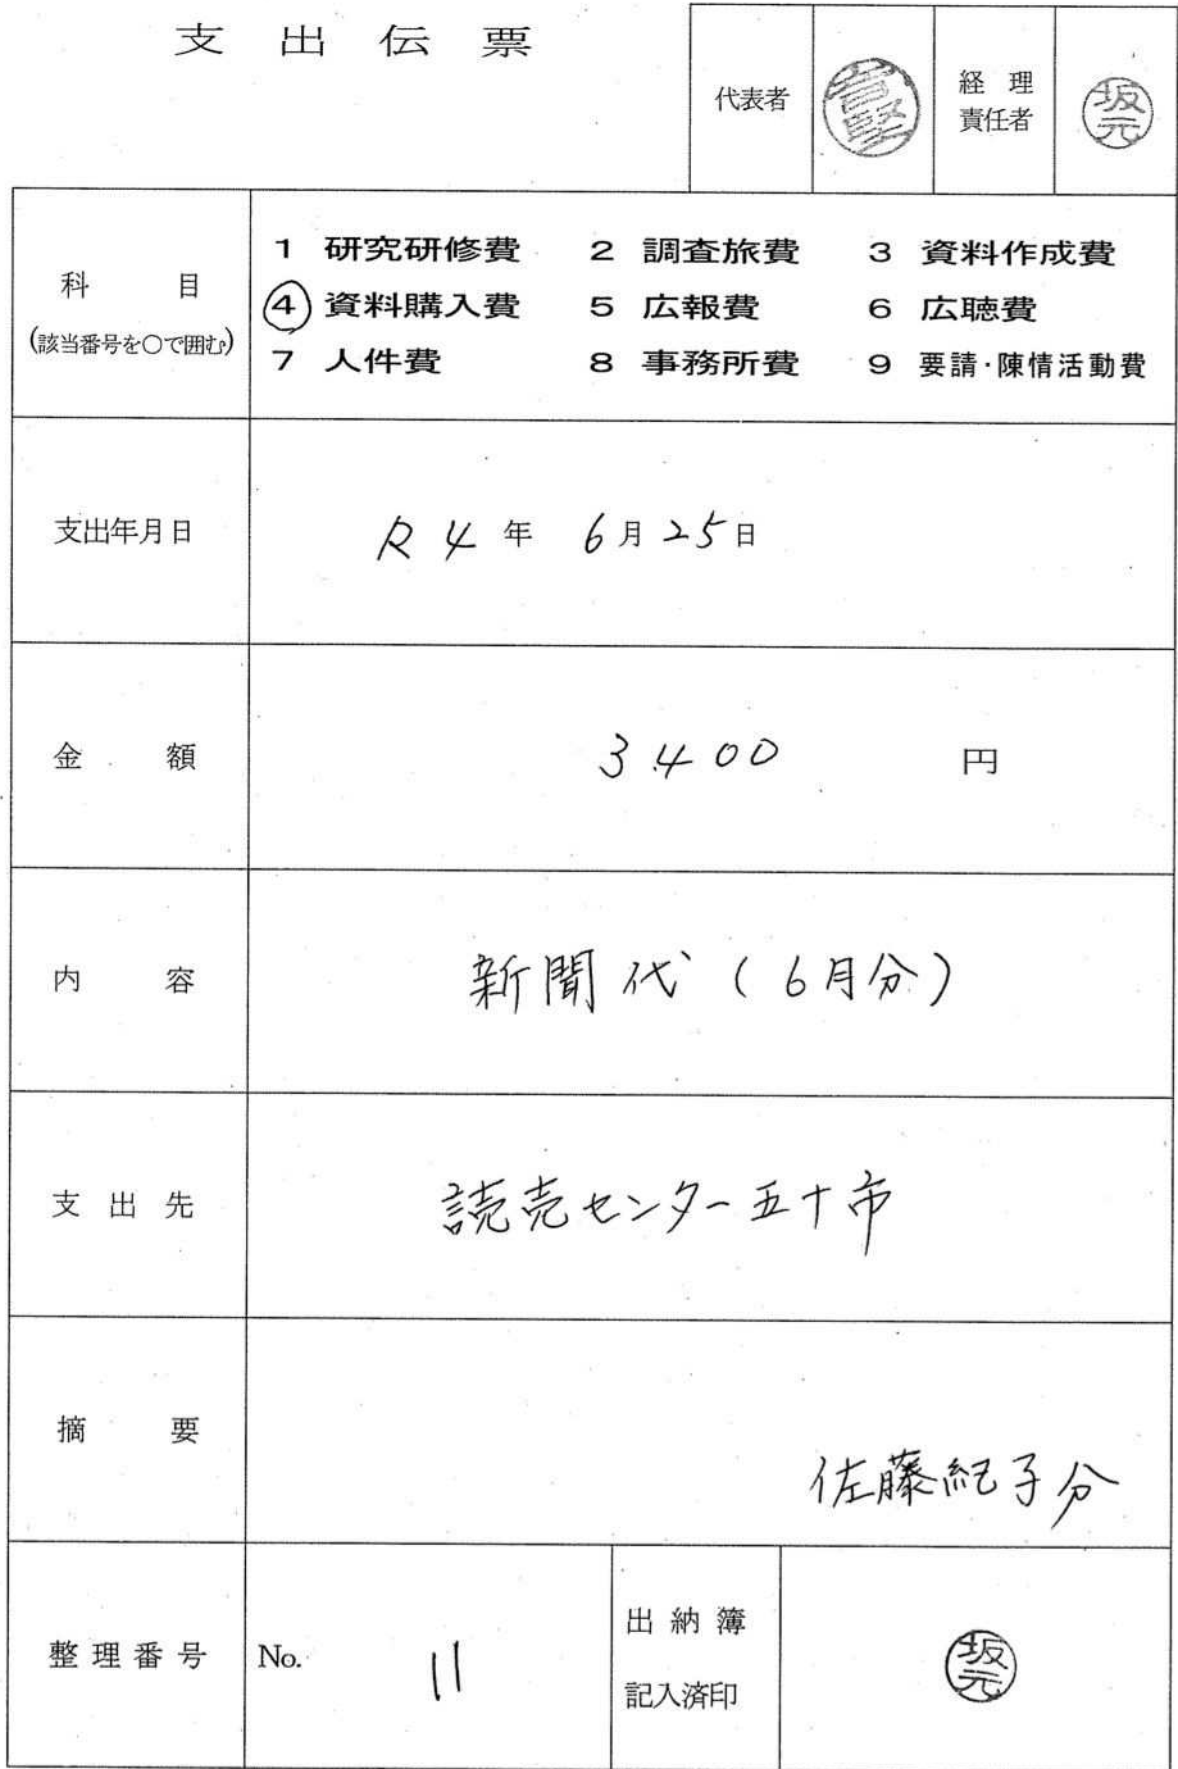 支出伝票
代表者
経理
責任者
坂元
科目
(該当番号を○で囲む)
1 研究研修費 2 調査旅費 3 資料作成費
4 資料購入費 5 広報費 6 広聴費
7 人件費 8 事務所費 9 要請・陳情活動費
支出年月日
R4年 6月25日
金額
3400 円
内容
新聞代(6月分)
支出先
読売センター五十市
摘要
佐藤紀子分
整理番号
No. 11
出納簿
記入済印
坂元